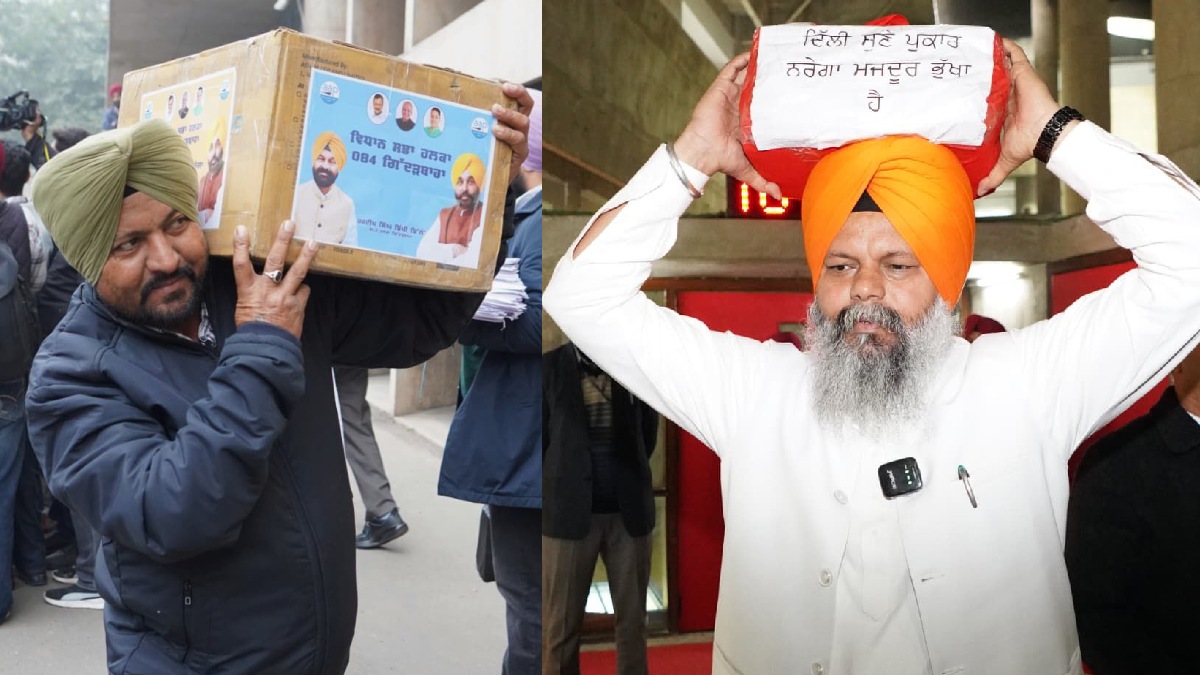 ਵਿਧਾਨ ਸਭਾ ਹਲਕਾ
084 ਗਿੱਦੜਬਾਹਾ
ਦਿੱਲੀ ਸੁਣੇ ਪੁਕਾਰ
ਨਰੇਗਾ ਮਜਦੂਰ ਭੁੱਖਾ
ਹੈ